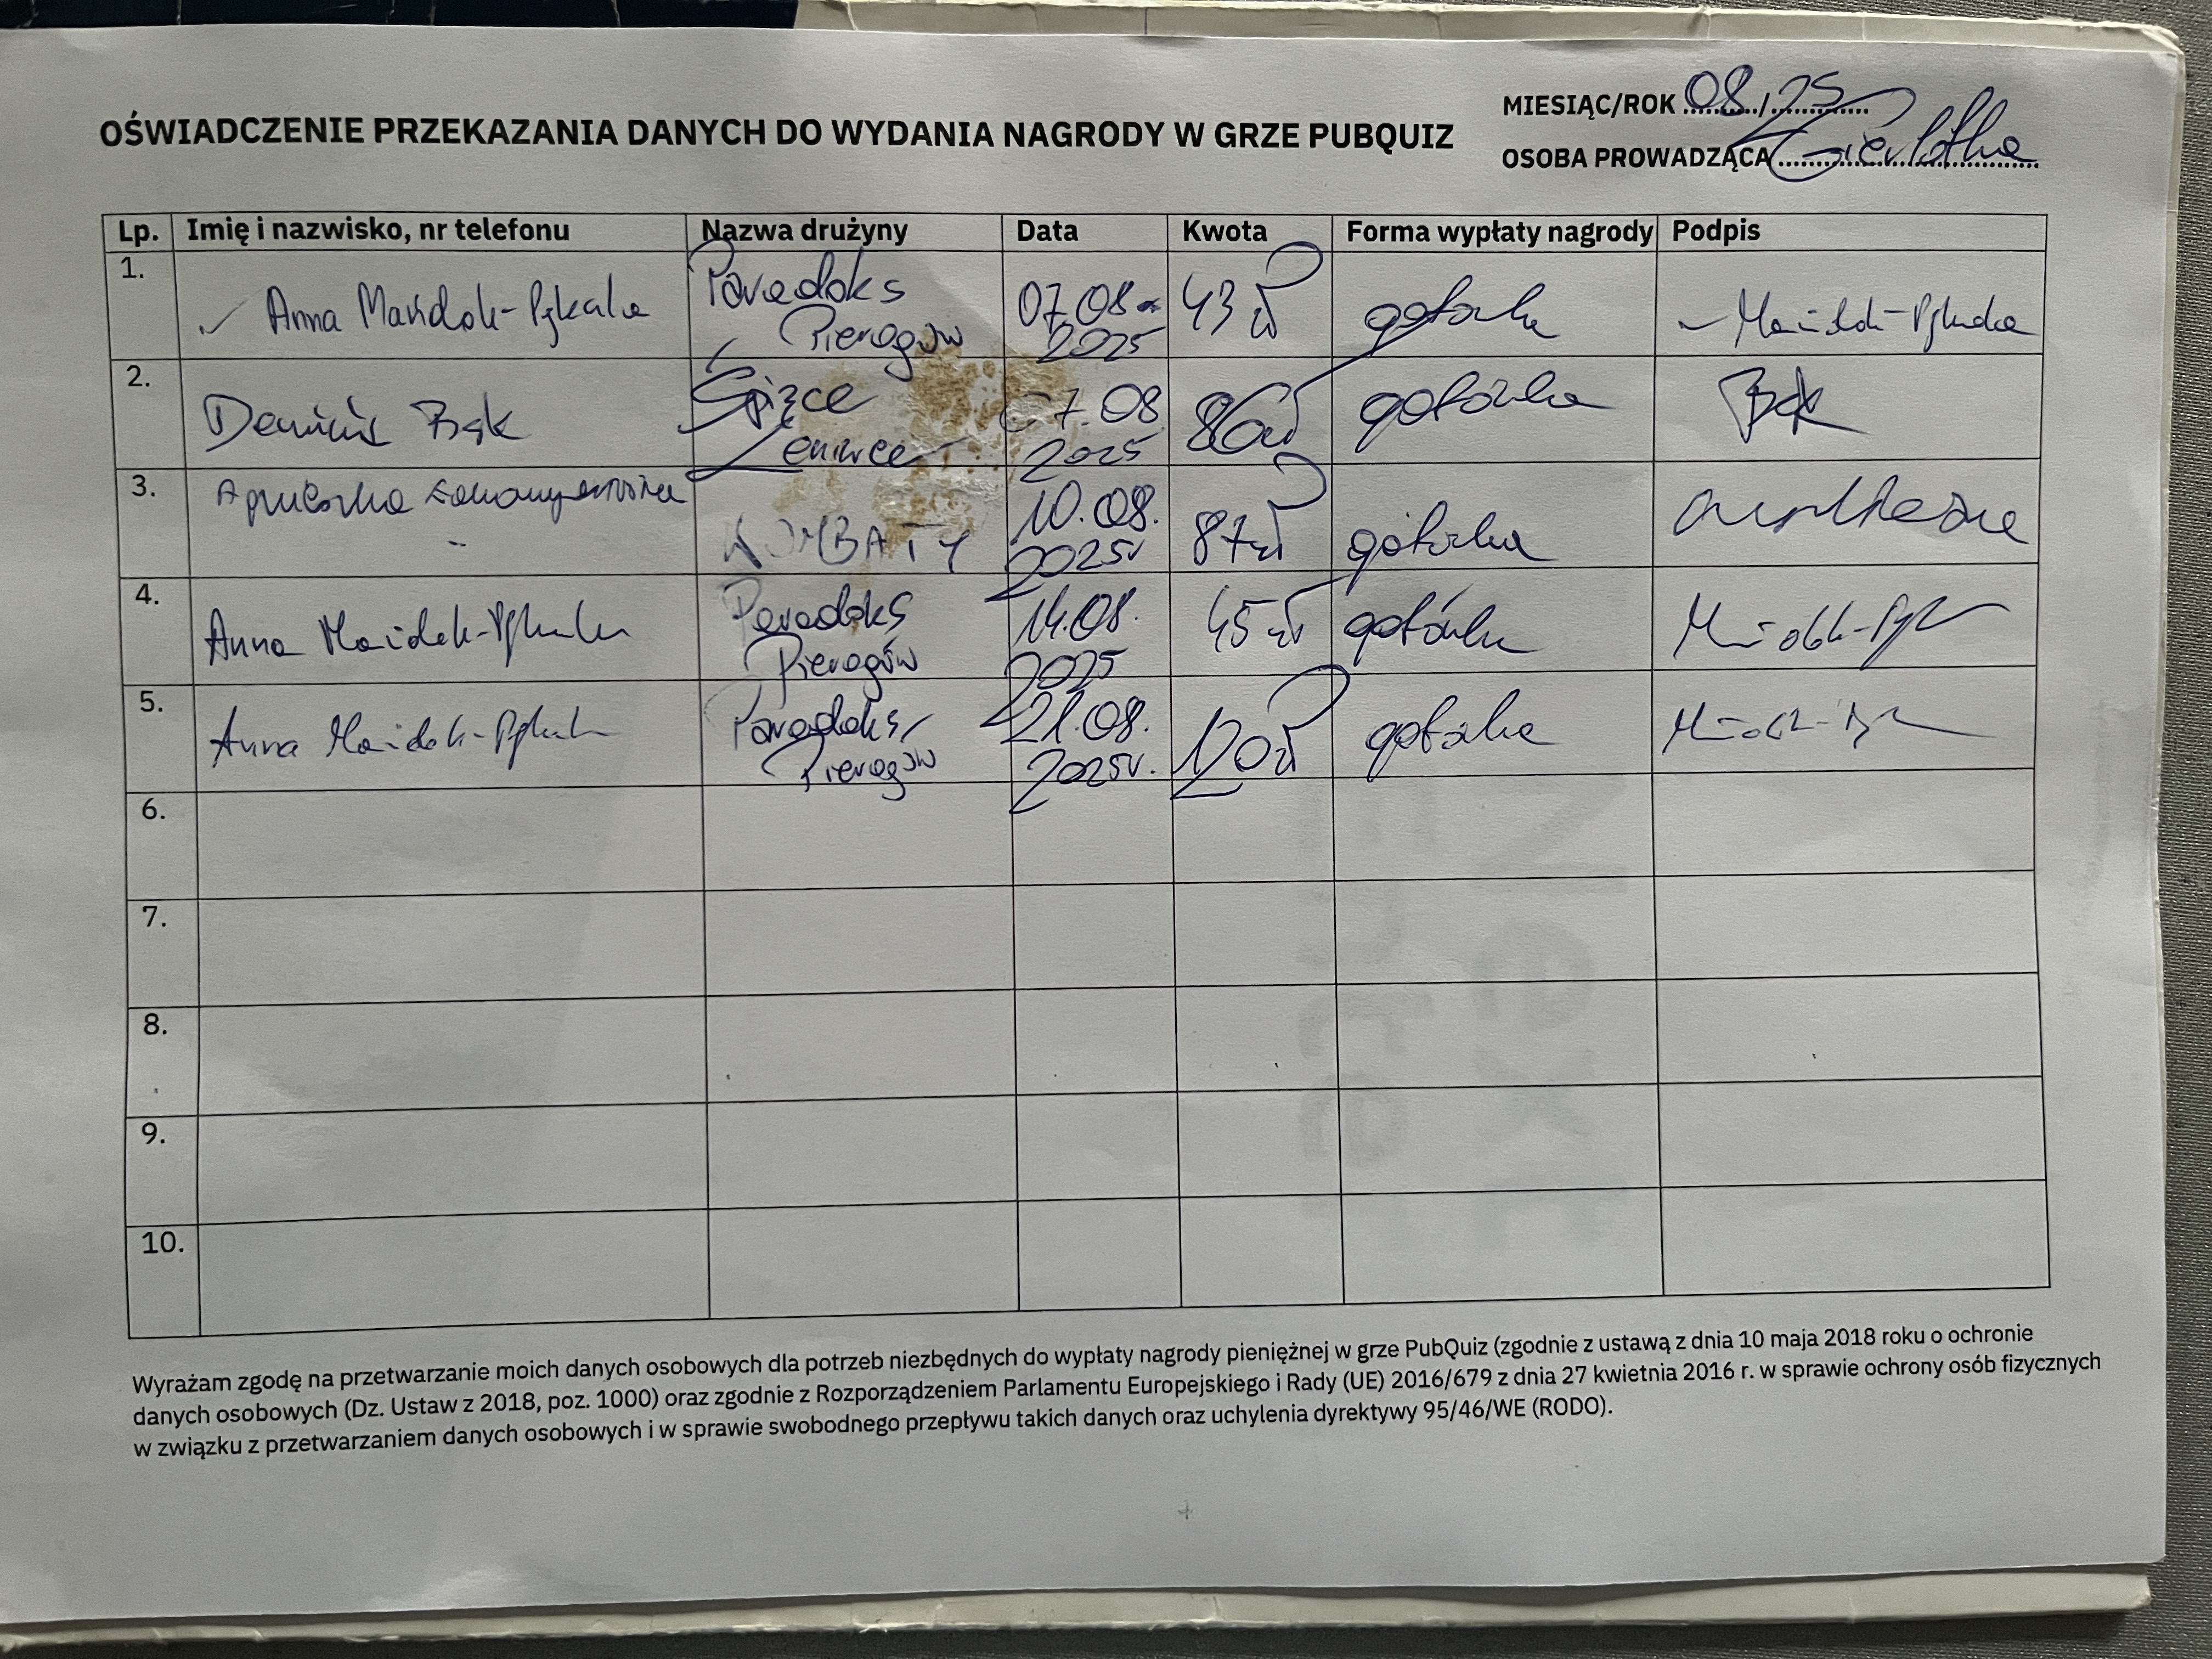 MIESIĄC/ROK 08/25
OŚWIADCZENIE PRZEKAZANIA DANYCH DO WYDANIA NAGRODY W GRZE PUBQUIZ
OSOBA PROWADZĄCA
Lp. Imię i nazwisko, nr telefonu Nazwa drużyny Data Kwota Forma wypłaty nagrody Podpis
1. Anna Paradoks Pierogów 07.08 2025 43 zł gotówka
2. Dominik Bąk Śpiące 07.08 2025 86 zł gotówka Bąk
3. Agnieszka WOMBATY 10.08. 2025r 87 zł gotówka
4. Anna Paradoks Pierogów 14.08. 2025 45 zł gotówka
5. Anna Paradoks Pierogów 21.08. 2025r. 120 zł gotówka
6.
7.
8.
9.
10.
Wyrażam zgodę na przetwarzanie moich danych osobowych dla potrzeb niezbędnych do wypłaty nagrody pieniężnej w grze PubQuiz (zgodnie z ustawą z dnia 10 maja 2018 roku o ochronie
danych osobowych (Dz. Ustaw z 2018, poz. 1000) oraz zgodnie z Rozporządzeniem Parlamentu Europejskiego i Rady (UE) 2016/679 z dnia 27 kwietnia 2016 r. w sprawie ochrony osób fizycznych
w związku z przetwarzaniem danych osobowych i w sprawie swobodnego przepływu takich danych oraz uchylenia dyrektywy 95/46/WE (RODO).